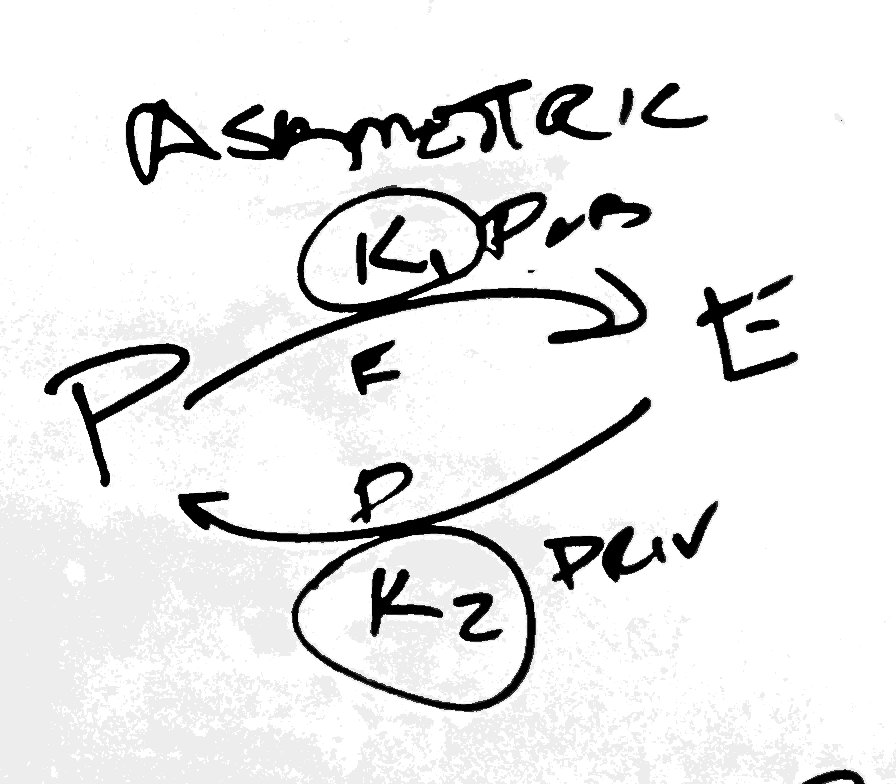 ASYMETRIC
K1 PUB
P E E
D
K2 PRIV